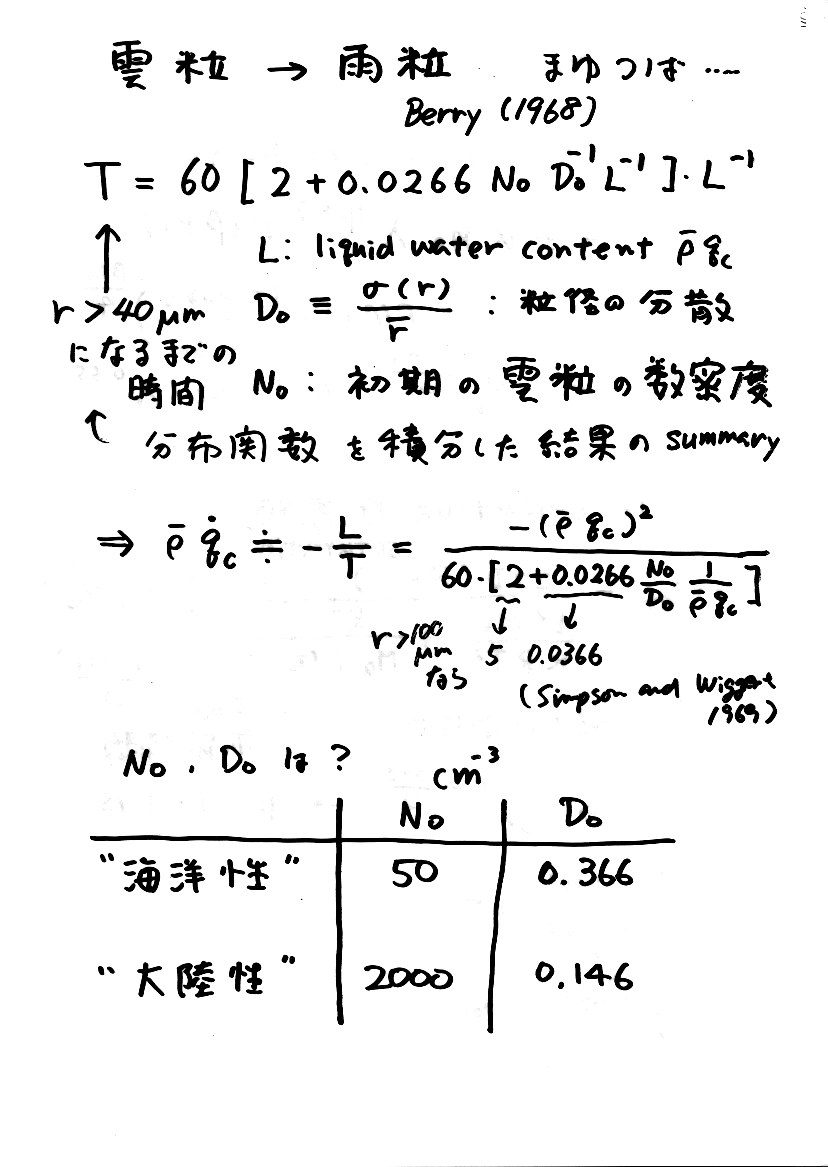 雲粒 → 雨粒 まゆつば ‥‥
Berry (1968)
T = 60 [ 2 + 0.0266 N₀ D₀⁻¹ L⁻¹ ]・L⁻¹
↑ L: liquid water content ρ̄ q_c
r > 40 μm D₀ ≡ σ(r) / r̄ : 粒径の分散
になるまでの
時間 N₀ : 初期の雲粒の数密度
↑ 分布関数を積分した結果の summary
⇒ ρ̄ q̇_c ≒ - L/T = -(ρ̄ q_c)² / 60・[ 2 + 0.0266 N₀/D₀ 1/(ρ̄ q_c) ]
↓ ↓
r > 100 μm なら 5 0.0366
(Simpson and Wiggert
1969)
N₀ . D₀ は? cm⁻³
N₀ D₀
"海洋性" 50 0.366
"大陸性" 2000 0.146